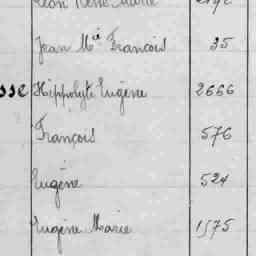 Léon René Marie
Jean Mie François 35
sse Hippolyte Eugène 2666
François 576
Eugène 524
Eugène Marie 1575